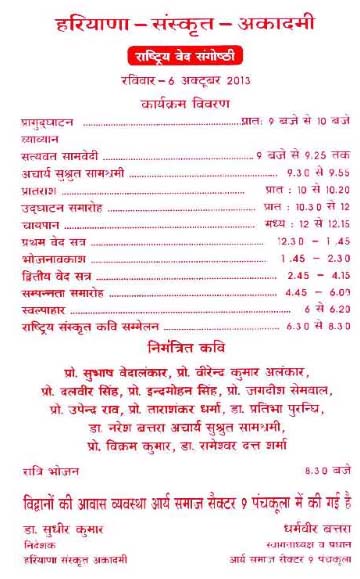 हरियाणा – संस्कृत – अकादमी
राष्ट्रिय वेब संगोष्ठी
रविवार – 6 अक्टूबर 2013
कार्यक्रम विवरण
प्रागुद्घाटन ........ प्रातः 9 बजे से 10 बजे
व्याख्यान
सत्यवत सामवेदी ........ 9 बजे से 9.25 तक
आचार्य सुश्रुत सामश्रमी ........ 9.30 से 9.55
प्रातराश ........ प्रात : 10 से 10.20
उद्घाटन समारोह ........ प्रात : 10.30 से 12
चायपान ........ मध्य : 12 से 12.15
प्रथम वेद सत्र ........ 12.30 – 1 .45
भोजनावकाश ........ 1.45 – 2.30
द्वितीय वेद सत्र ........ 2.45 – 4.15
सम्पन्नता समारोह ........ 4.45 – 6.00
स्वल्पाहार ........ 6 से 6.20
राष्ट्रिय संस्कृत कवि सम्मेलन ........ 6.30 से 8.30
निमंत्रित कवि
प्रो. सुभाष वेदालंकार, प्रो. वीरेन्द्र कुमार अलंकार,
प्रो. दलवीर सिंह, प्रो. इन्द्रमोहन सिंह, प्रो. जगदीश सेमवाल,
प्रो. उपेन्द्र राव, प्रो. ताराशंकर शर्मा, डा. प्रतिभा पुरन्घि,
डा. नरेश बत्तरा आचार्य सुश्रुत सामश्रमी,
प्रो. विक्रम कुमार, डा. रामेश्वर दत्त शर्मा
रात्रि भोजन 8.30 बजे
विद्वानों की आवास व्यवस्था आर्य समाज सैक्टर 9 पंचकूला में की गई है
डा. सुधीर कुमार धर्मवीर बत्तरा
निदेशक स्वागताध्यक्ष व प्रधान
हरियाणा संस्कृत अकादमी आर्य समाज सैक्टर 9 पंचकूला